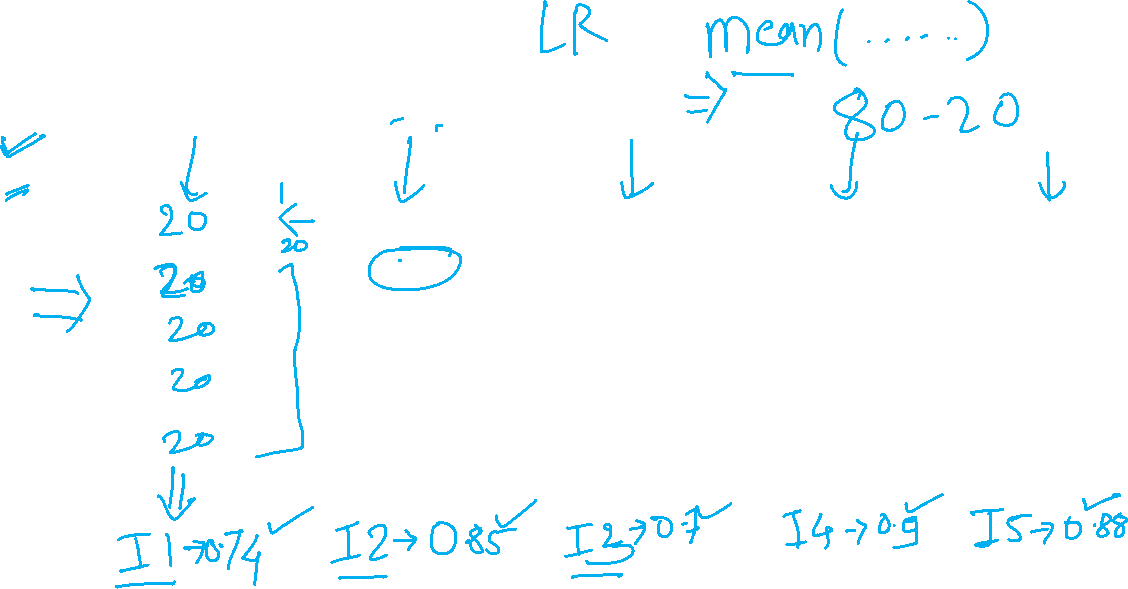 LR mean(......)
⇒ 80-20
20
20
20
20
20
20
I1→0.74 I2→0.85 I3→0.7 I4→0.9 I5→0.88